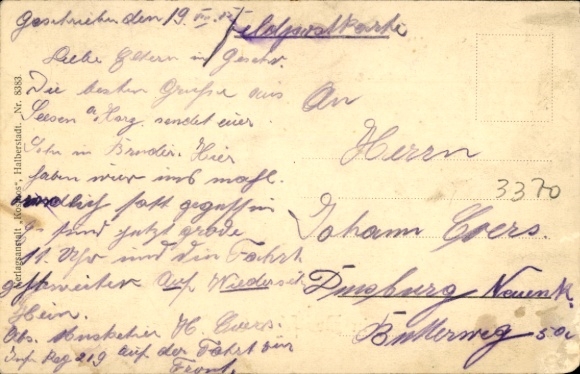 Geschrieben den 19.
Feldpostkarte
Liebe Eltern in Geschw.
Die besten Grüße aus
Seesen a Harz. sendet euer
Sohn in Bruder. Hier
haben wier uns mahl.
endlich satt gegessen
sind jetzt grade
11. Uhr und die Fahrt
geht weiter Auf Wiederseh
Hein.
Abs. Musketier H. Evers.
Inf. Reg 219 auf der Fahrt zur
Front.
An
Herrn
Johann Evers.
Duisburg Neuenk.
Butterweg 50a
3370
Verlagsanstalt „Kosmos“, Halberstadt. Nr. 8383.